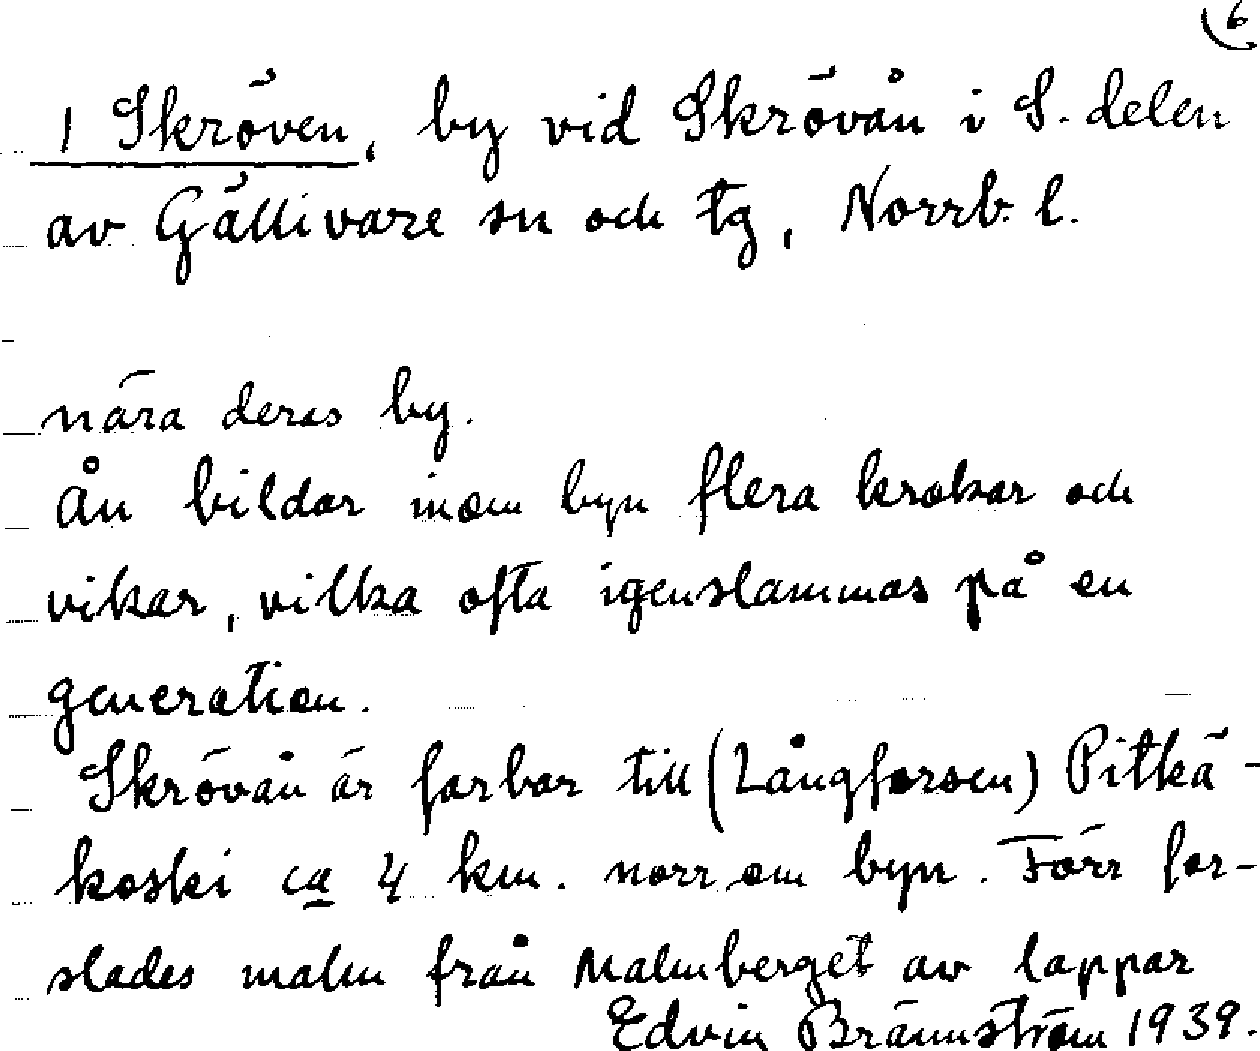 6
1 Skröven, by vid Skrövån i S. delen
av Gällivare sn och tg, Norrb. l.
nära deras by.
Ån bildar inom byn flera krokar och
vikar, vilka ofta igenslammas på en
generation.
Skrövån är farbar till (Långforsen) Pitkä-
koski ca 4 km. norr om byn. Förr for-
slades malm från Malmberget av lappar
Edvin Brännström 1939.